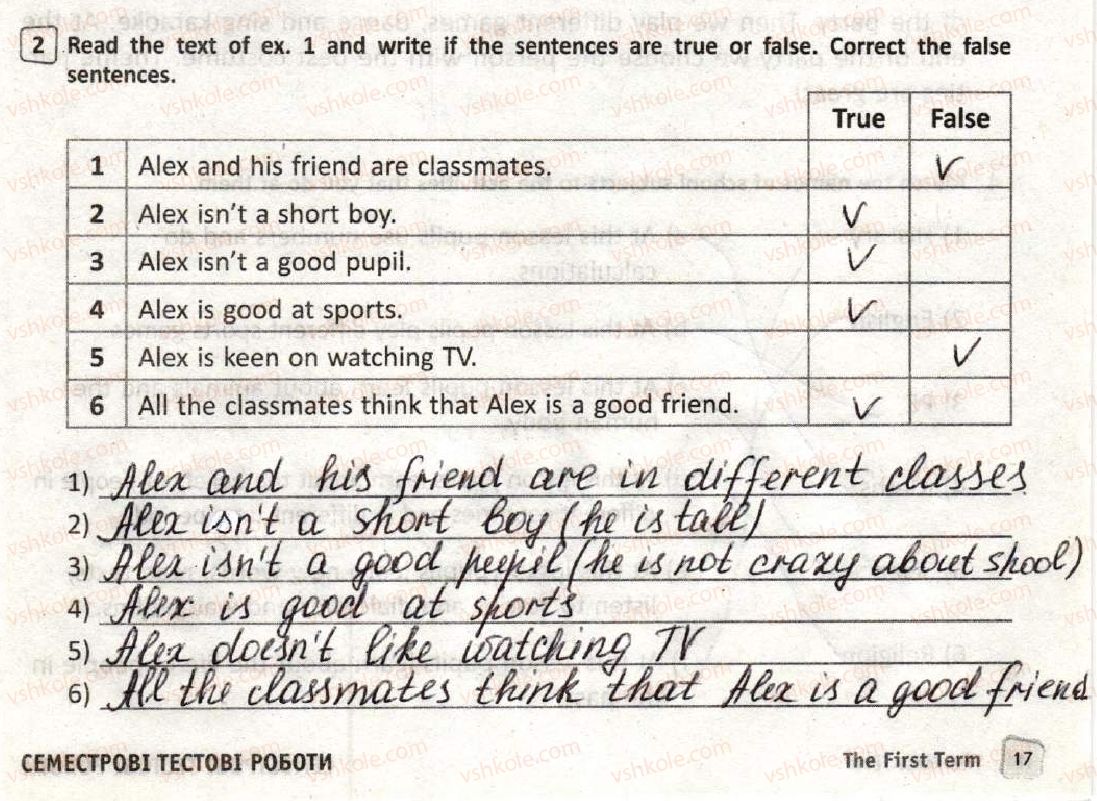 2 Read the text of ex. 1 and write if the sentences are true or false. Correct the false
sentences.
True False
1 Alex and his friend are classmates. V
2 Alex isn't a short boy. V
3 Alex isn't a good pupil. V
4 Alex is good at sports. V
5 Alex is keen on watching TV. V
6 All the classmates think that Alex is a good friend. V
1) Alex and his friend are in different classes
2) Alex isn't a short boy (he is tall)
3) Alex isn't a good pupil (he is not crazy about shool)
4) Alex is good at sports
5) Alex doesn't like watching TV
6) All the classmates think that Alex is a good friend
СЕМЕСТРОВІ ТЕСТОВІ РОБОТИ The First Term 17
vshkole.com